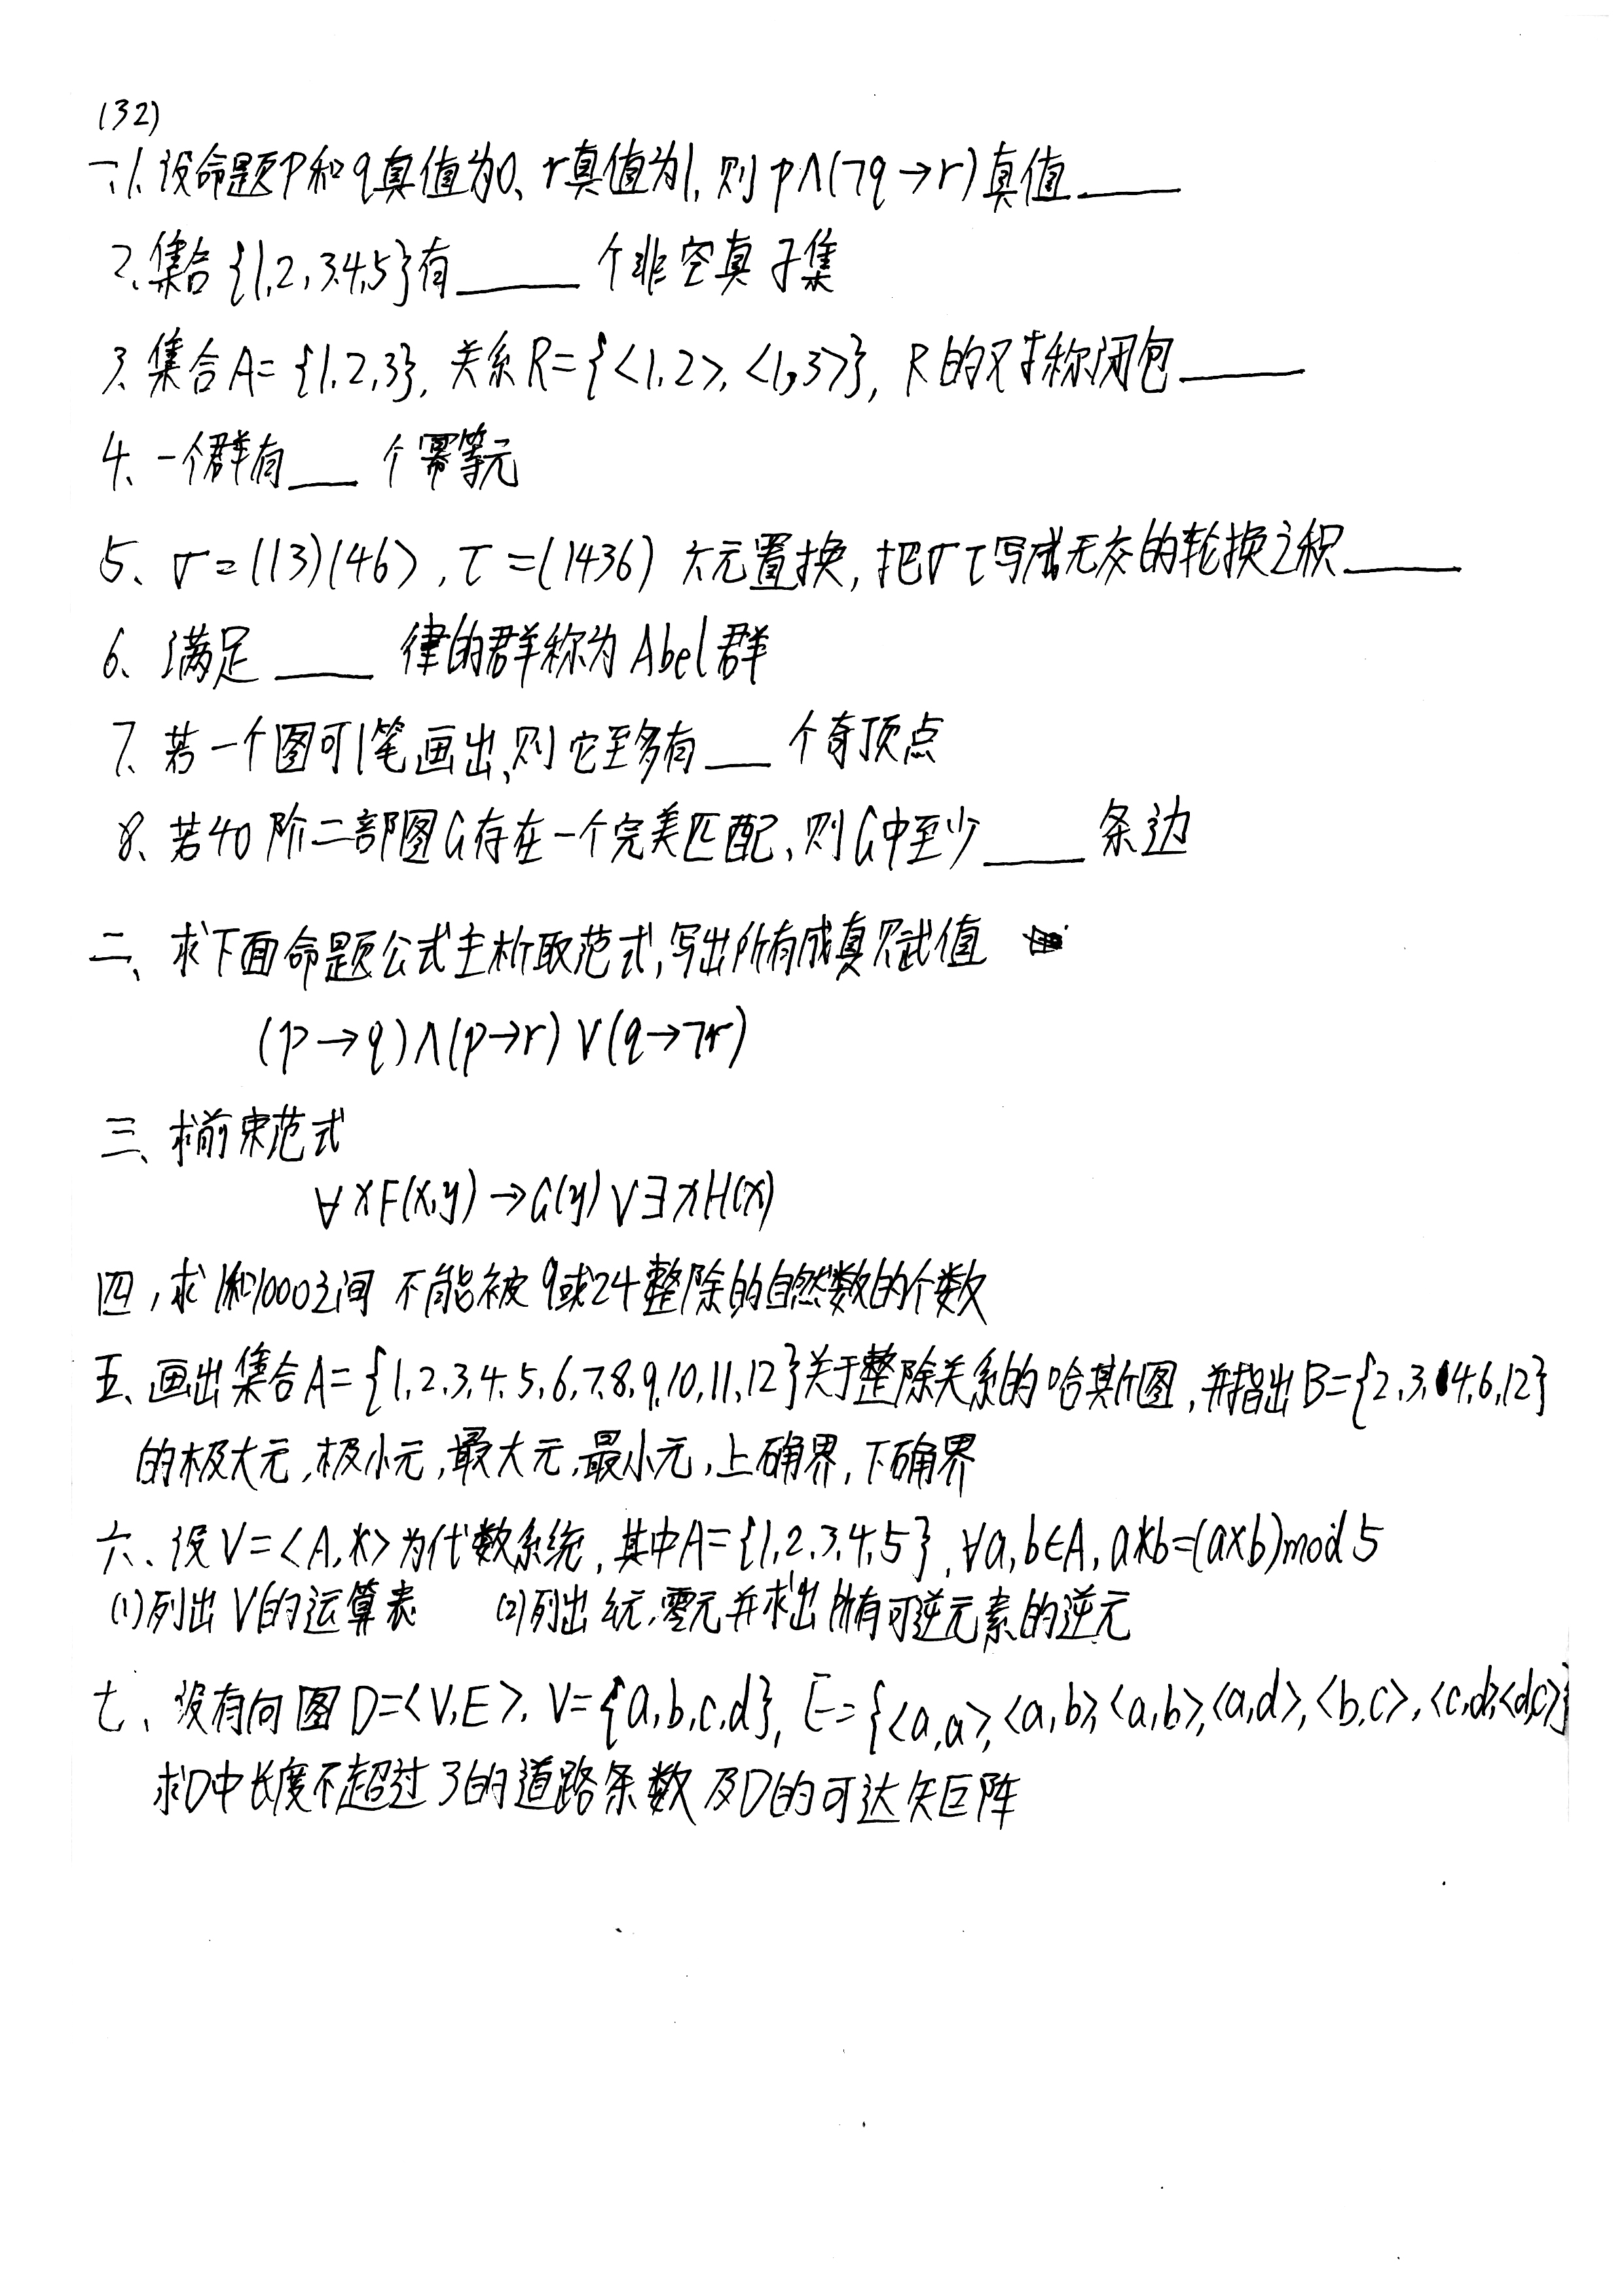 (32)
一、1. 设命题P和q真值为0、r真值为1, 则 p∧(¬q→r)真值____
2、集合{1,2,3,4,5}有____个非空真子集
3、集合A={1,2,3}, 关系R={<1,2>,<1,3>}, R的对称闭包____
4、一个群有__个幂等元
5、σ=(13)(46), τ=(1436) 六元置换, 把στ写成无交的轮换之积____
6、满足____律的群称为Abel群
7、若一个图可1笔画出,则它至多有__个奇顶点
8、若40阶二部图G存在一个完美匹配、则G中至少____条边
二、求下面命题公式主析取范式,写出所有成真赋值
(p→q)∧(p→r)∨(q→¬r)
三、求前束范式
∀xF(x,y)→G(y)∨∃xH(x)
四,求1和1000之间不能被9或24整除的自然数的个数
五、画出集合A={1,2,3,4,5,6,7,8,9,10,11,12}关于整除关系的哈斯图,并指出B={2,3,4,6,12}
的极大元,极小元,最大元,最小元,上确界,下确界
六、设V=<A,*>为代数系统,其中A={1,2,3,4,5},∀a,b∈A,a*b=(a×b)mod5
(1)列出V的运算表 (2)列出幺元,零元并求出所有可逆元素的逆元
七、设有向图D=<V,E>,V={a,b,c,d},E={<a,a>,<a,b>,<a,b>,<a,d>,<b,c>,<c,d>,<d,c>}
求D中长度不超过3的道路条数及D的可达矩阵